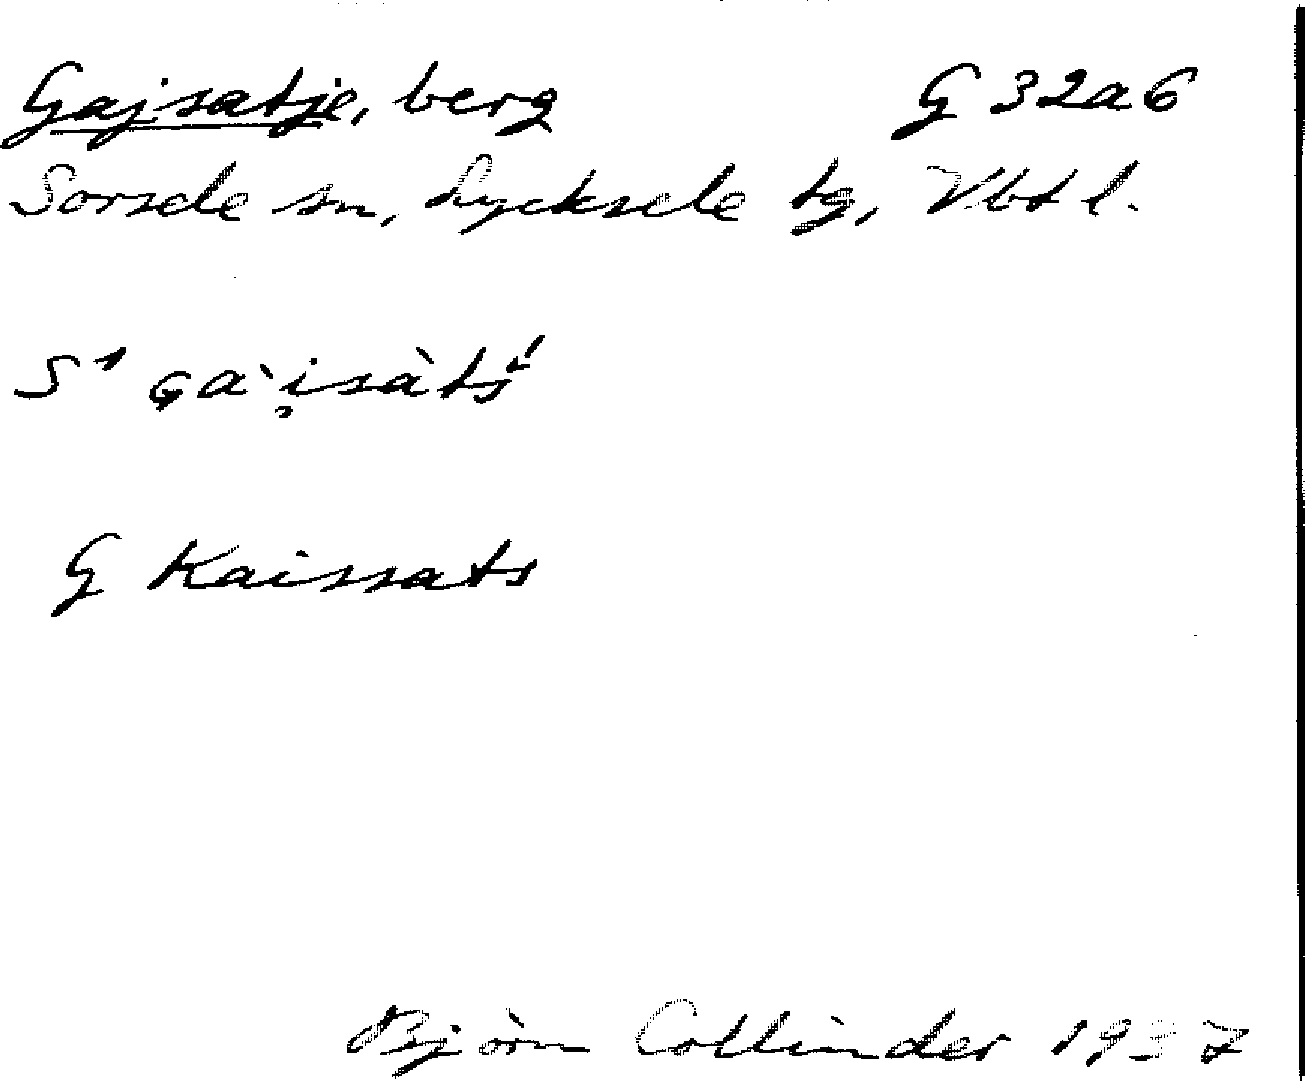 Gajsatje, berg G 32a6
Sorsele sn, Lycksele tg, Vbtl.
S¹ ɢa`i̯sàtś
G Kaissats
Björn Collinder 1937